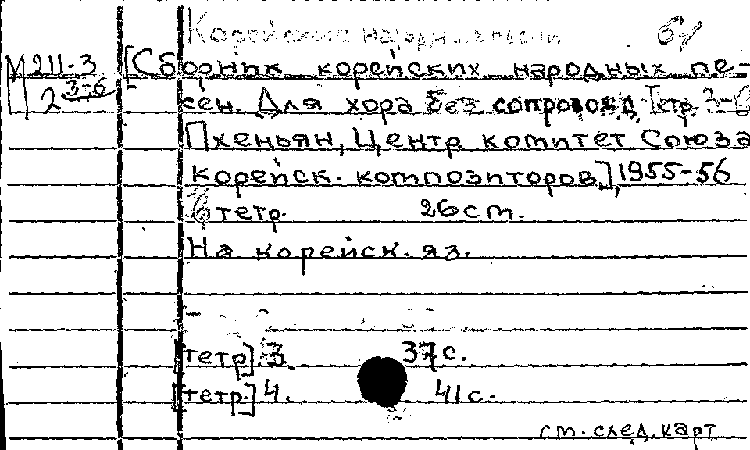 Корейские народн песни 61
М 211-3 [Сборник корейских народных пе-
2 3-6 сен. Для хора без сопровожд. Тетр. 3-6
Пхеньян, Центр комитет Союза
корейск. композиторов], 1955-56
тетр. 26 cm.
На корейск. яз.
[тетр.] 3. 37 с.
[тетр.] 4. 41 с.
см. след. карт